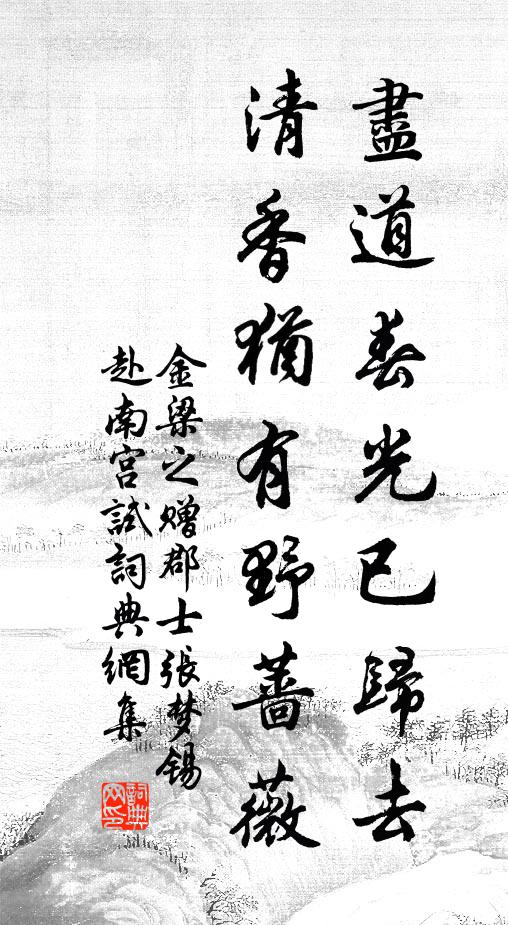 盡道春光已歸去
清香猶有野薔薇
金梁之贈郡士張梦錫
赴南宫試詞典網集
詞典网印